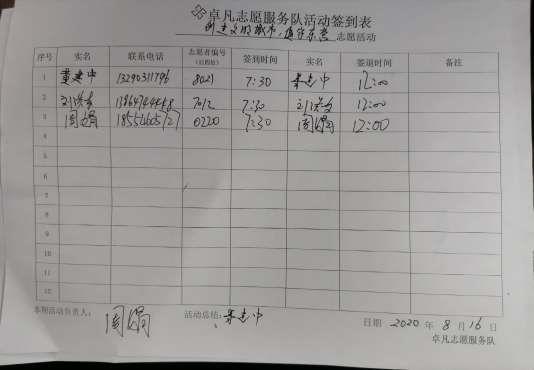 卓凡志愿服务队活动签到表
创建文明城市，值守东营 志愿活动
序号 实名 联系电话 志愿者编号（后四位） 签到时间 实名 签退时间 备注
1 董建中 13290311796 8021 7:30 董建中 12:00
2 7012 7:30 12:00
3 周娟 18554605727 0220 7:30 周娟 12:00
4
5
6
7
8
9
10
11
12
本期活动负责人： 周娟 活动总结： 董建中 日期 2020 年 8 月 16 日
卓凡志愿服务队